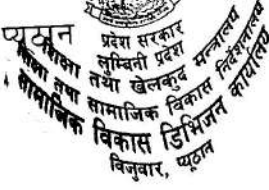 प्रदेश सरकार
लुम्बिनी प्रदेश
शिक्षा तथा खेलकुद मन्त्रालय
शिक्षा तथा सामाजिक विकास निर्देशनालय
सामाजिक विकास डिभिजन कार्यालय
विजुवार, प्यूठान
प्यूठान